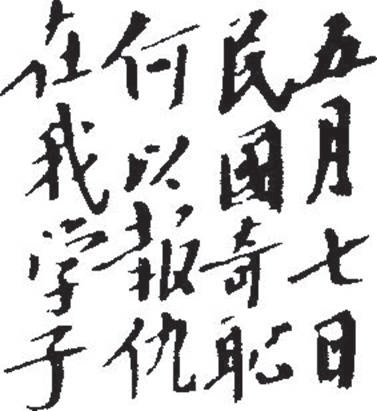 五月七日
民国奇耻
何以报仇
在我学子